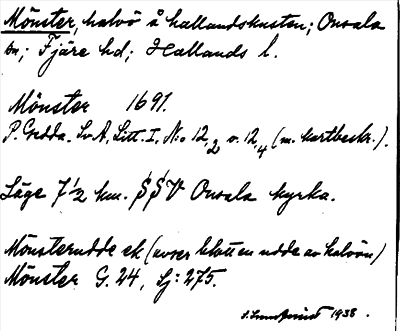 Mönster, halvö å hallandskusten; Onsala
sn; Fjäre hd; Hallands l.
Mönster 1691.
P. Gedda. Sv. A, Litt. I, N:o 12,2 o. 12,4 (m. kartbeskr.).
Läge 7 1/2 km. SSV Onsala kyrka.
Mönsterudde ek (avser blott en udde av halvön)
Mönster G. 24, Sj: 275.
1938.